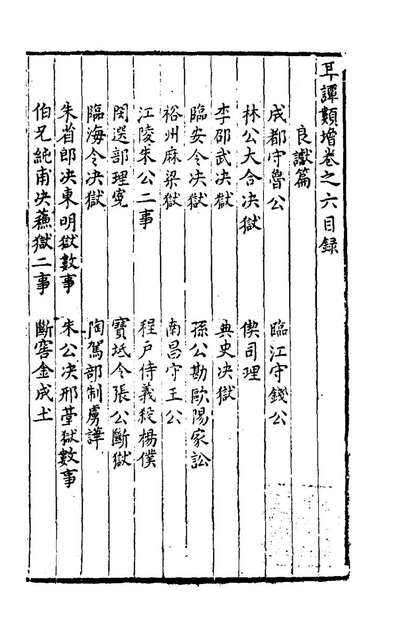 耳譚類增卷之六目録
良讞篇
成都守魯公　臨江守錢公
林公大合决獄　偰司理
李邵武决獄　典史决獄
臨安令决獄　孫公勘歐陽家訟
裕州麻梁獄　南昌守王公
江陵朱公二事　程戶侍義殺楊僕
閔選部理寃　寶坻令張公斷獄
臨海令决獄　陶駕部制虜譁
朱省郎决東明獄數事　朱公决邢臺獄數事
伯兄統甫决蘓獄二事　斷窖金成土